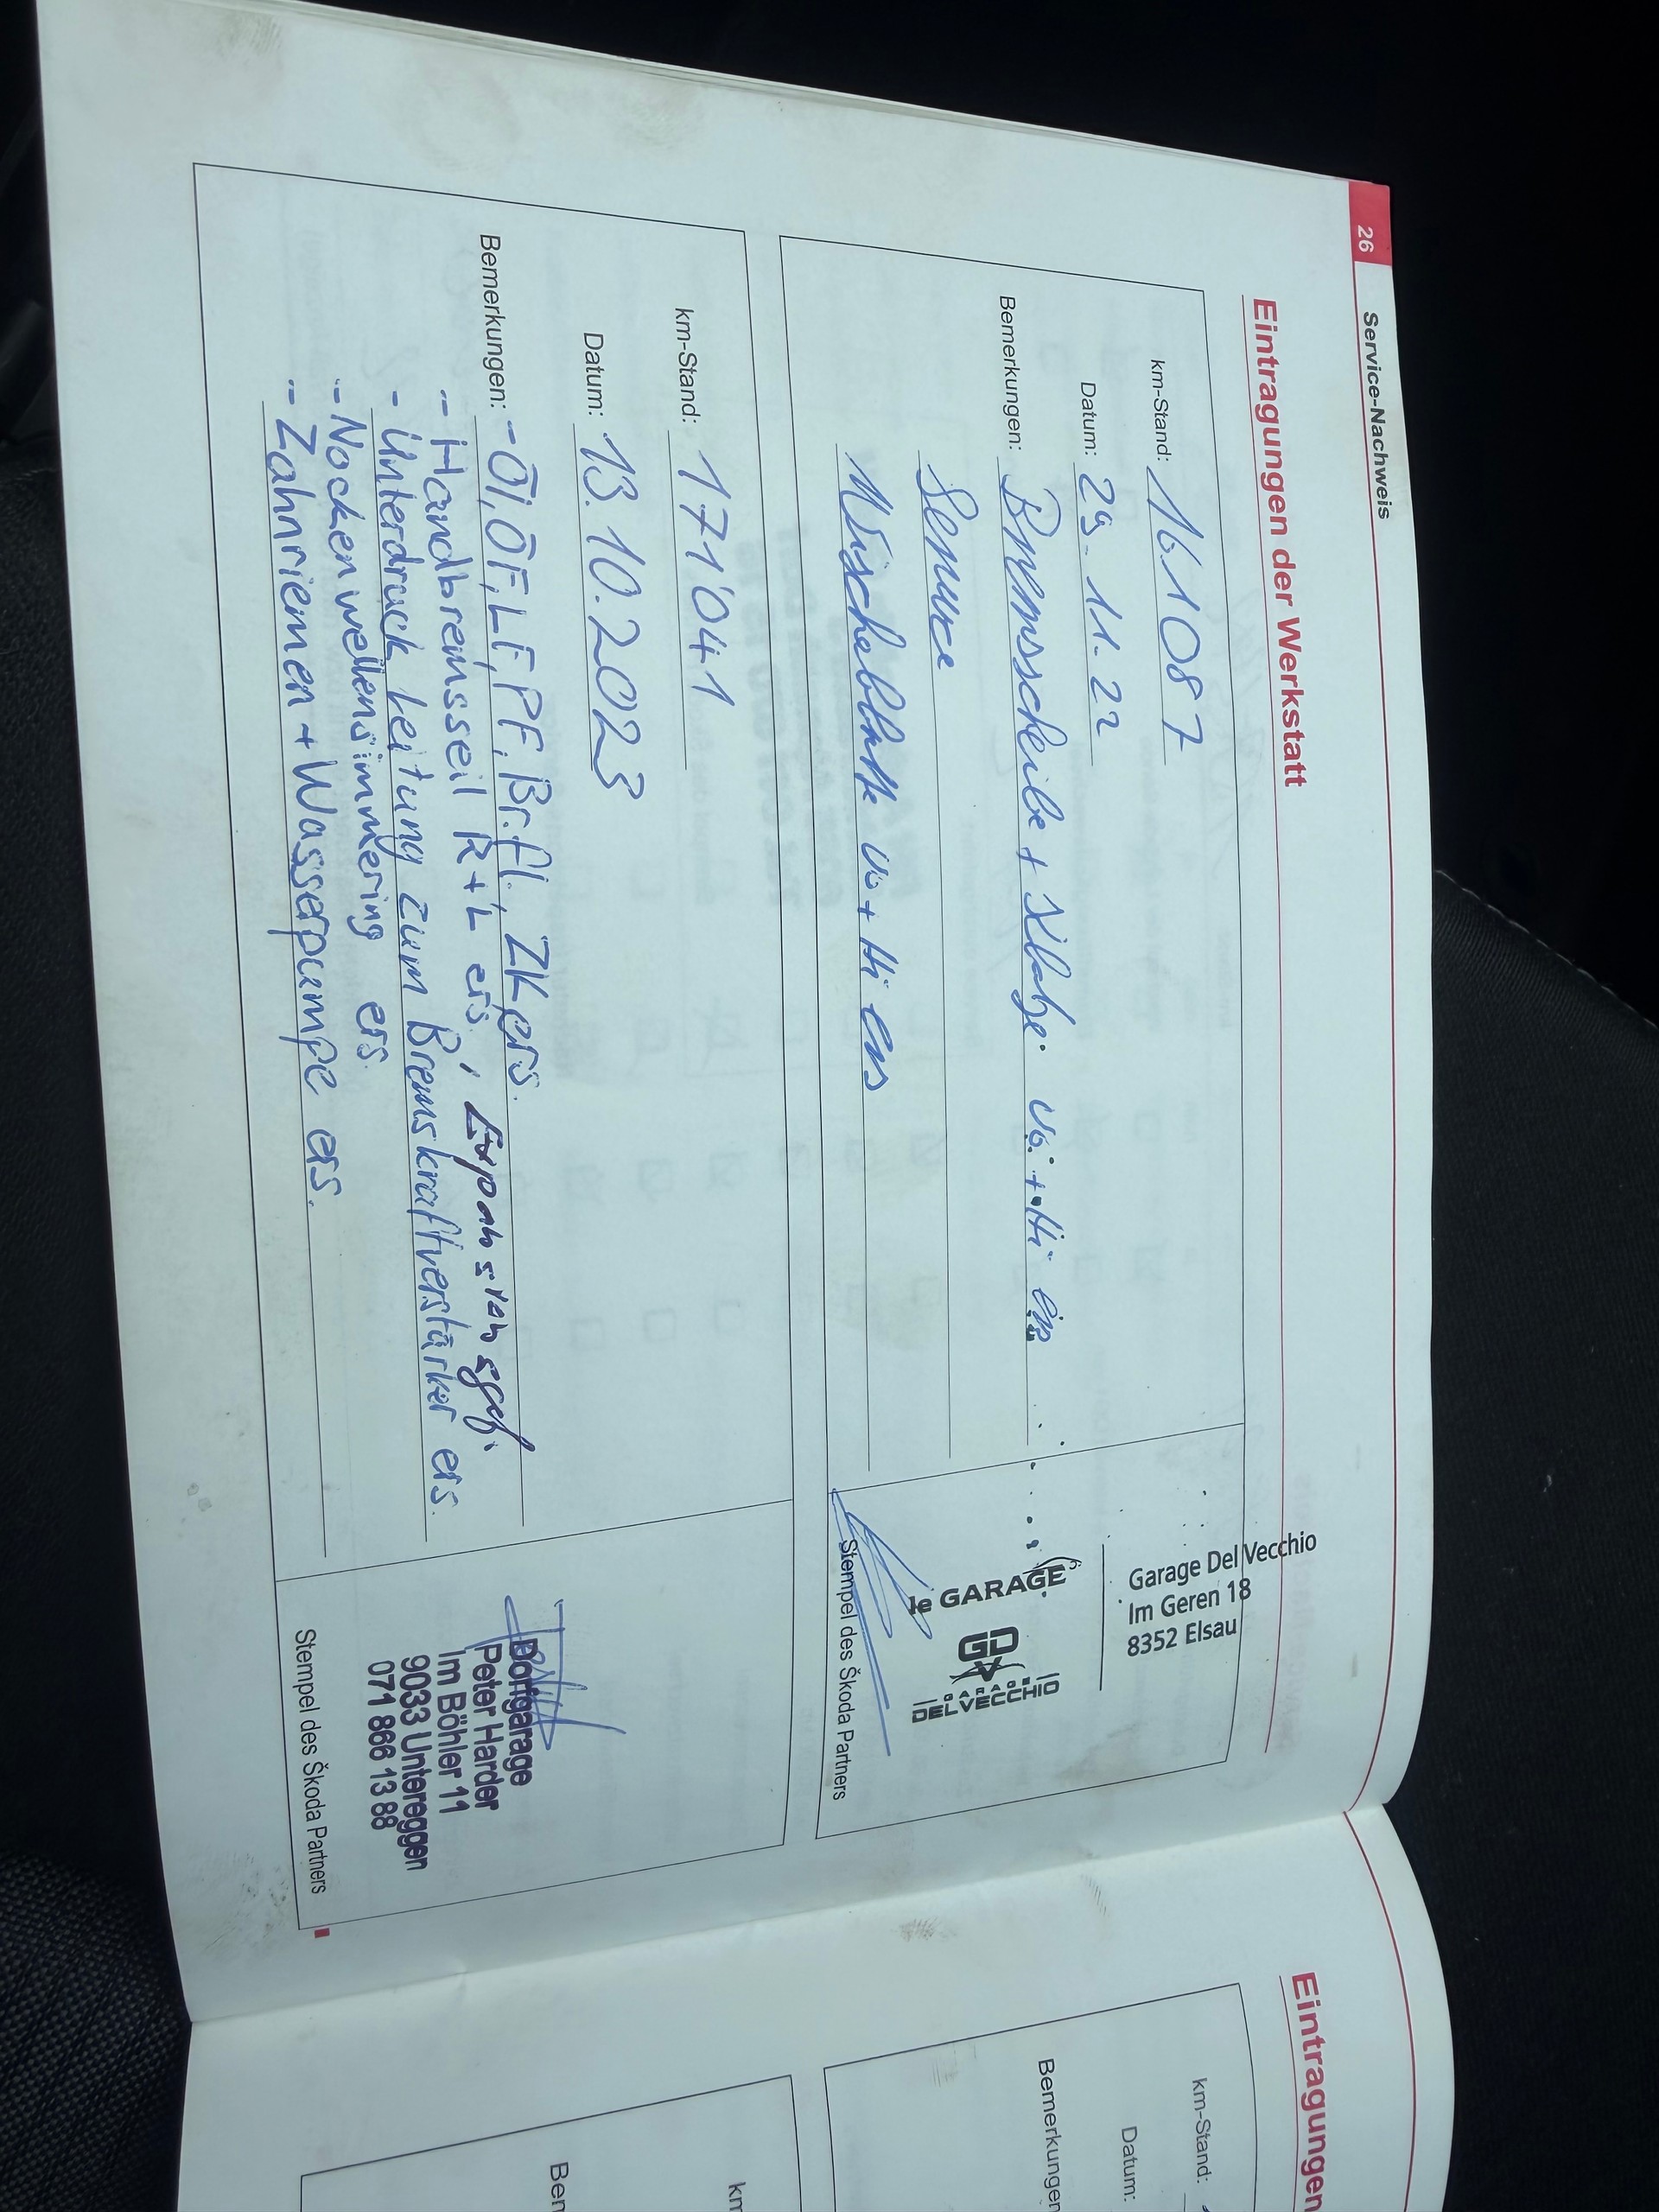 26
Service-Nachweis
Eintragungen der Werkstatt
km-Stand: 161087
Datum: 29. 11. 22
Bemerkungen: Bremsscheibe + Kläbe vo. + Hi
Service
Wischeblatte vo + Hi ers
Garage Del Vecchio
Im Geren 18
8352 Elsau
le GARAGE
GD
GARAGE
DEL VECCHIO
Stempel des Škoda Partners
km-Stand: 171'041
Datum: 13.10.2023
Bemerkungen: - Öl, ÖF, LF, PF, Br.fl., ZK ers.
- Handbremsseil R+L ers.,
- Unterdruck leitung zum Bremskraftverstärker ers.
- Nockenwellensimmering ers.
- Zahnriemen + Wasserpumpe ers.
Dorfgarage
Peter Harder
Im Böhler 11
9033 Untereggen
071 866 13 88
Stempel des Škoda Partners
Eintragungen
km-Stand:
Datum:
Bemerkungen
km
Ben